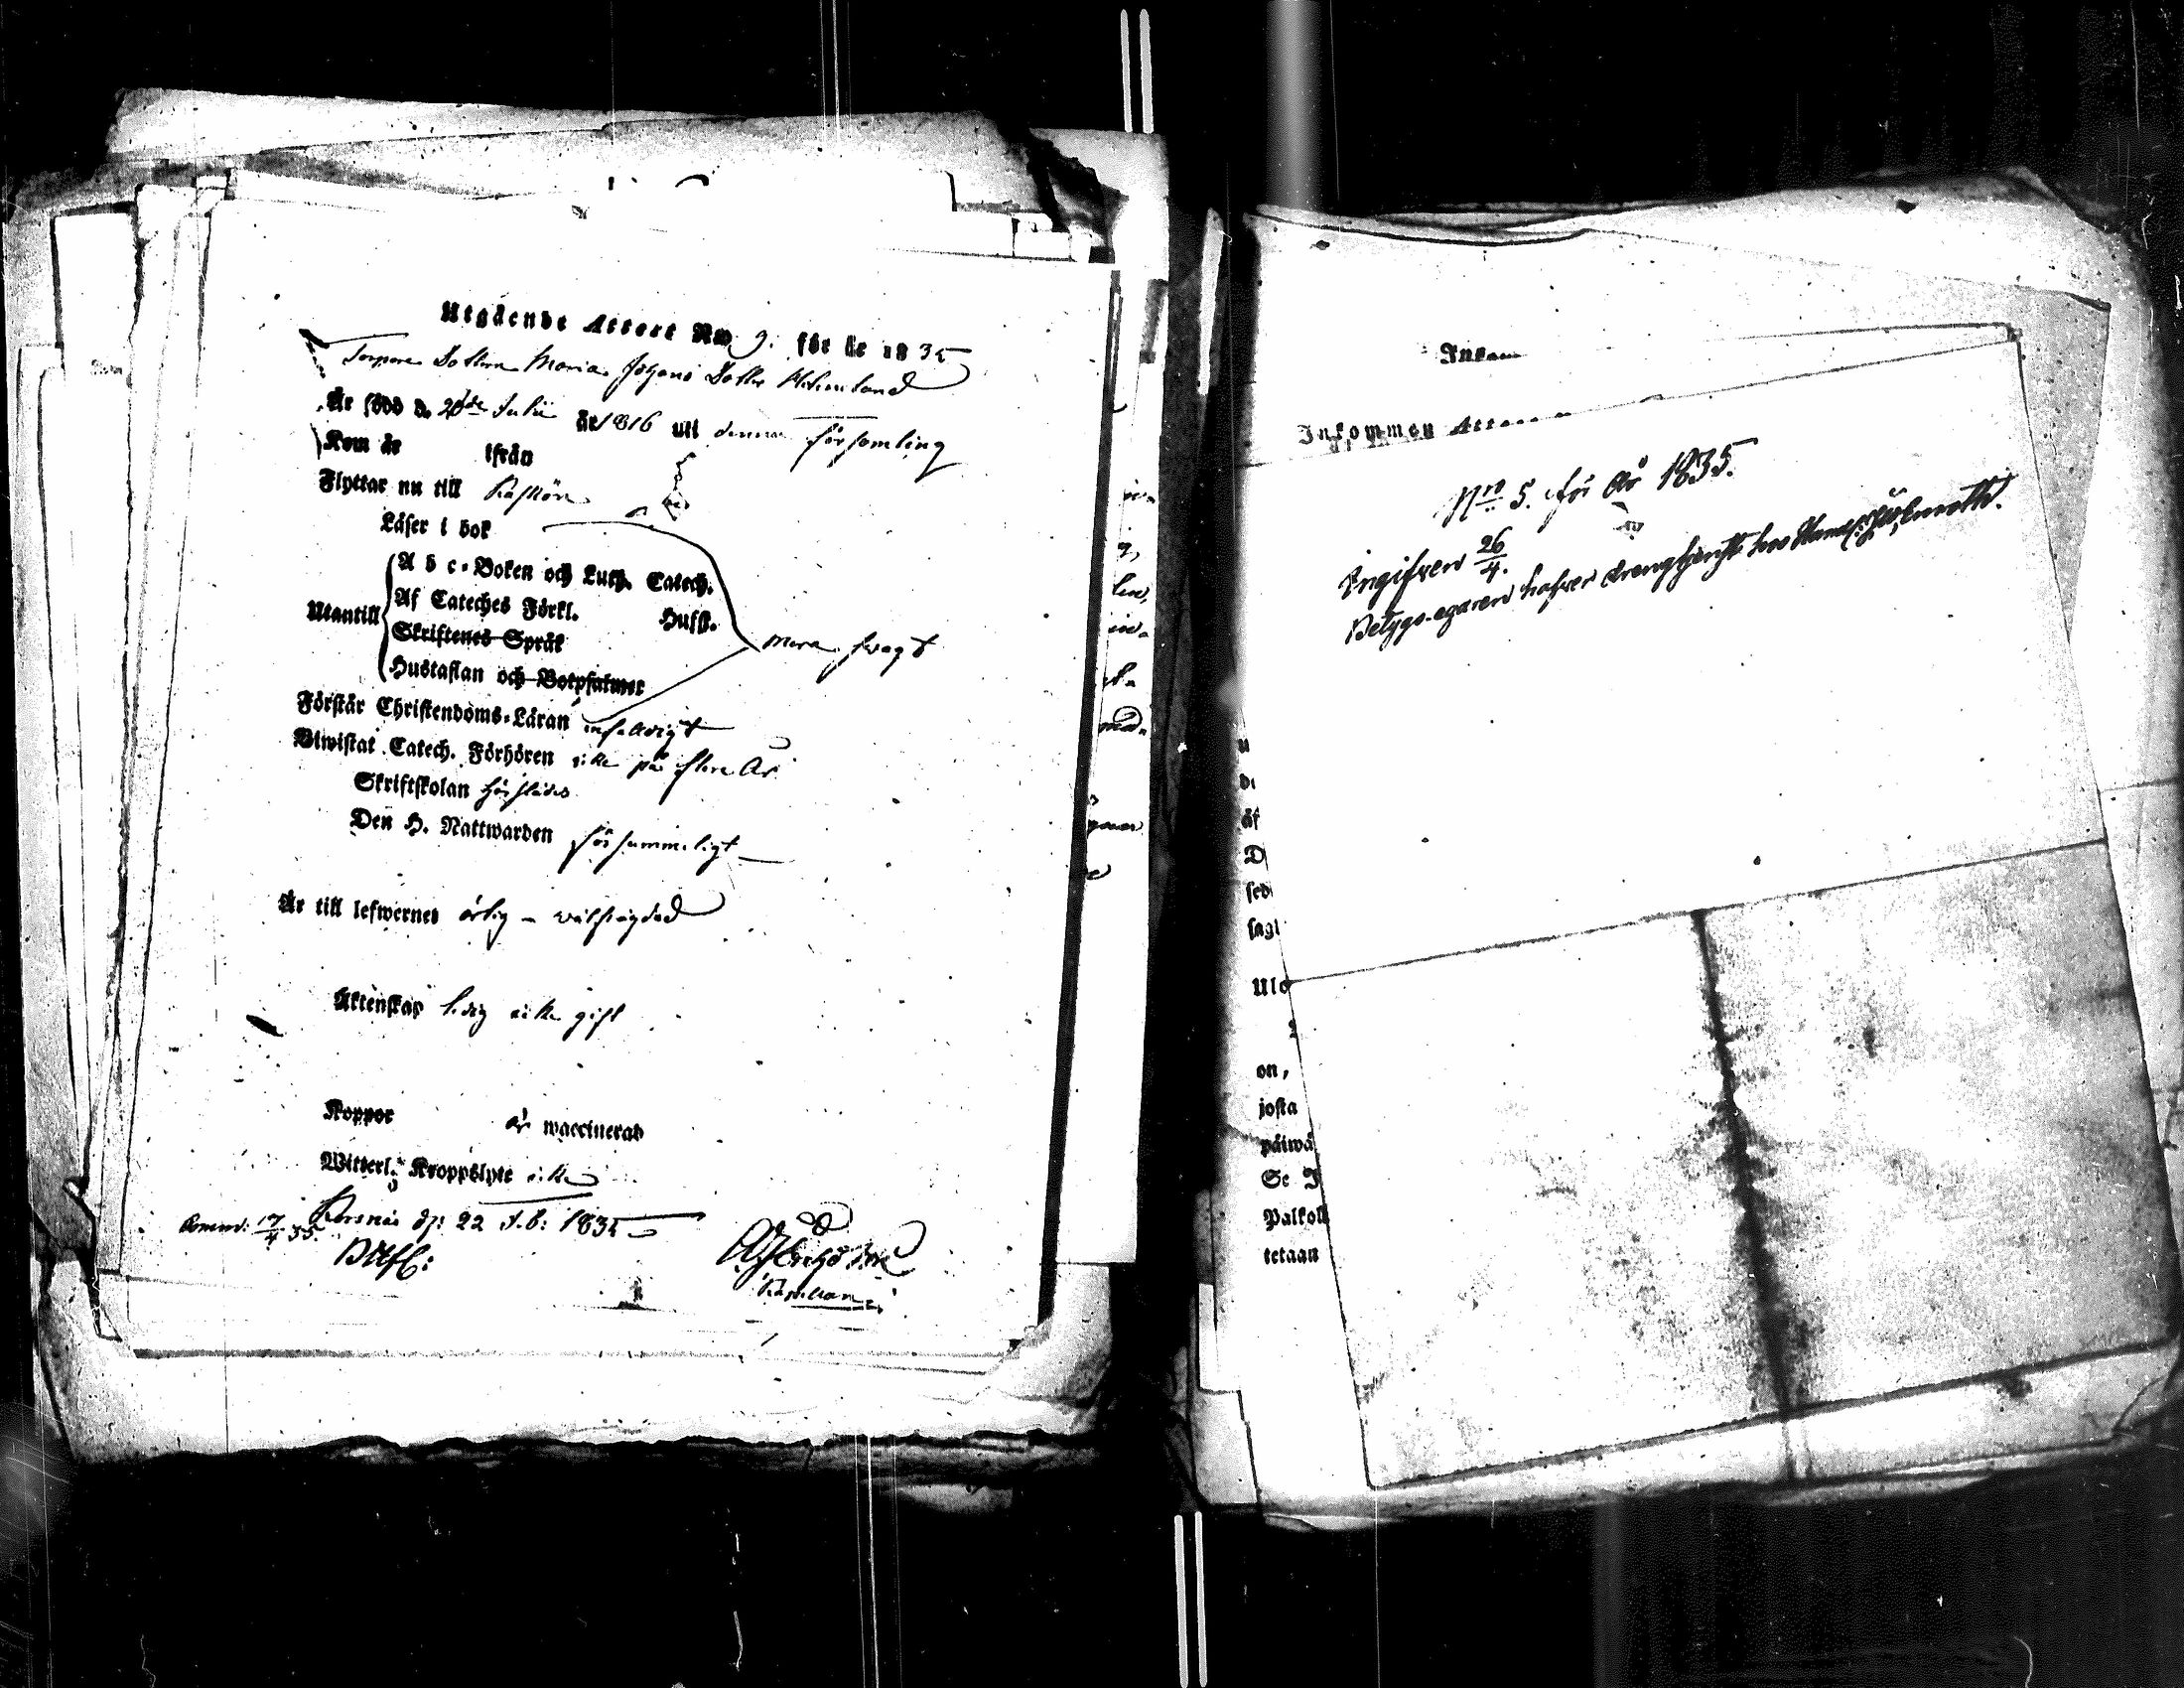 Utgående Attest Nro 9. för år 1835
Torpare Dottren Maria Johans Dotter
Är född d. 20de Julii år 1816 uti denna församling
Kom år ifrån
Flyttar nu till Kaskön
Läser i bok
A b c-Boken och Luth. Catech.
Utantill Af Cateches Förkl. Hufst.
Skriftenes Språk
Hustaflan och Botpsalmer
mera swagt
Förstår Christendoms-Läran enfaldigt
Biwistat Catech. Förhören icke på flere År
Skriftskolan
Den H. Nattwarden försummeligt
Är till lefwernet ärlig - wälfrägdad
Äktenskap ledig icke gift
Koppor är waccinerad
Witterl. Kroppslyte icke
Korsnäs d: 22 Feb: 1835
17/4 35.
Kapellan
Inkom
Inkommen Attest
Nro 5. för år 1835.
Ingifven 26/4.
Betygs-egaren hafver drengtjenst hos Handl. Holmroth.
u
äf
D
fed
sagt
Ulo
on,
josta
päiwä
Se
Palkoll
tetaan